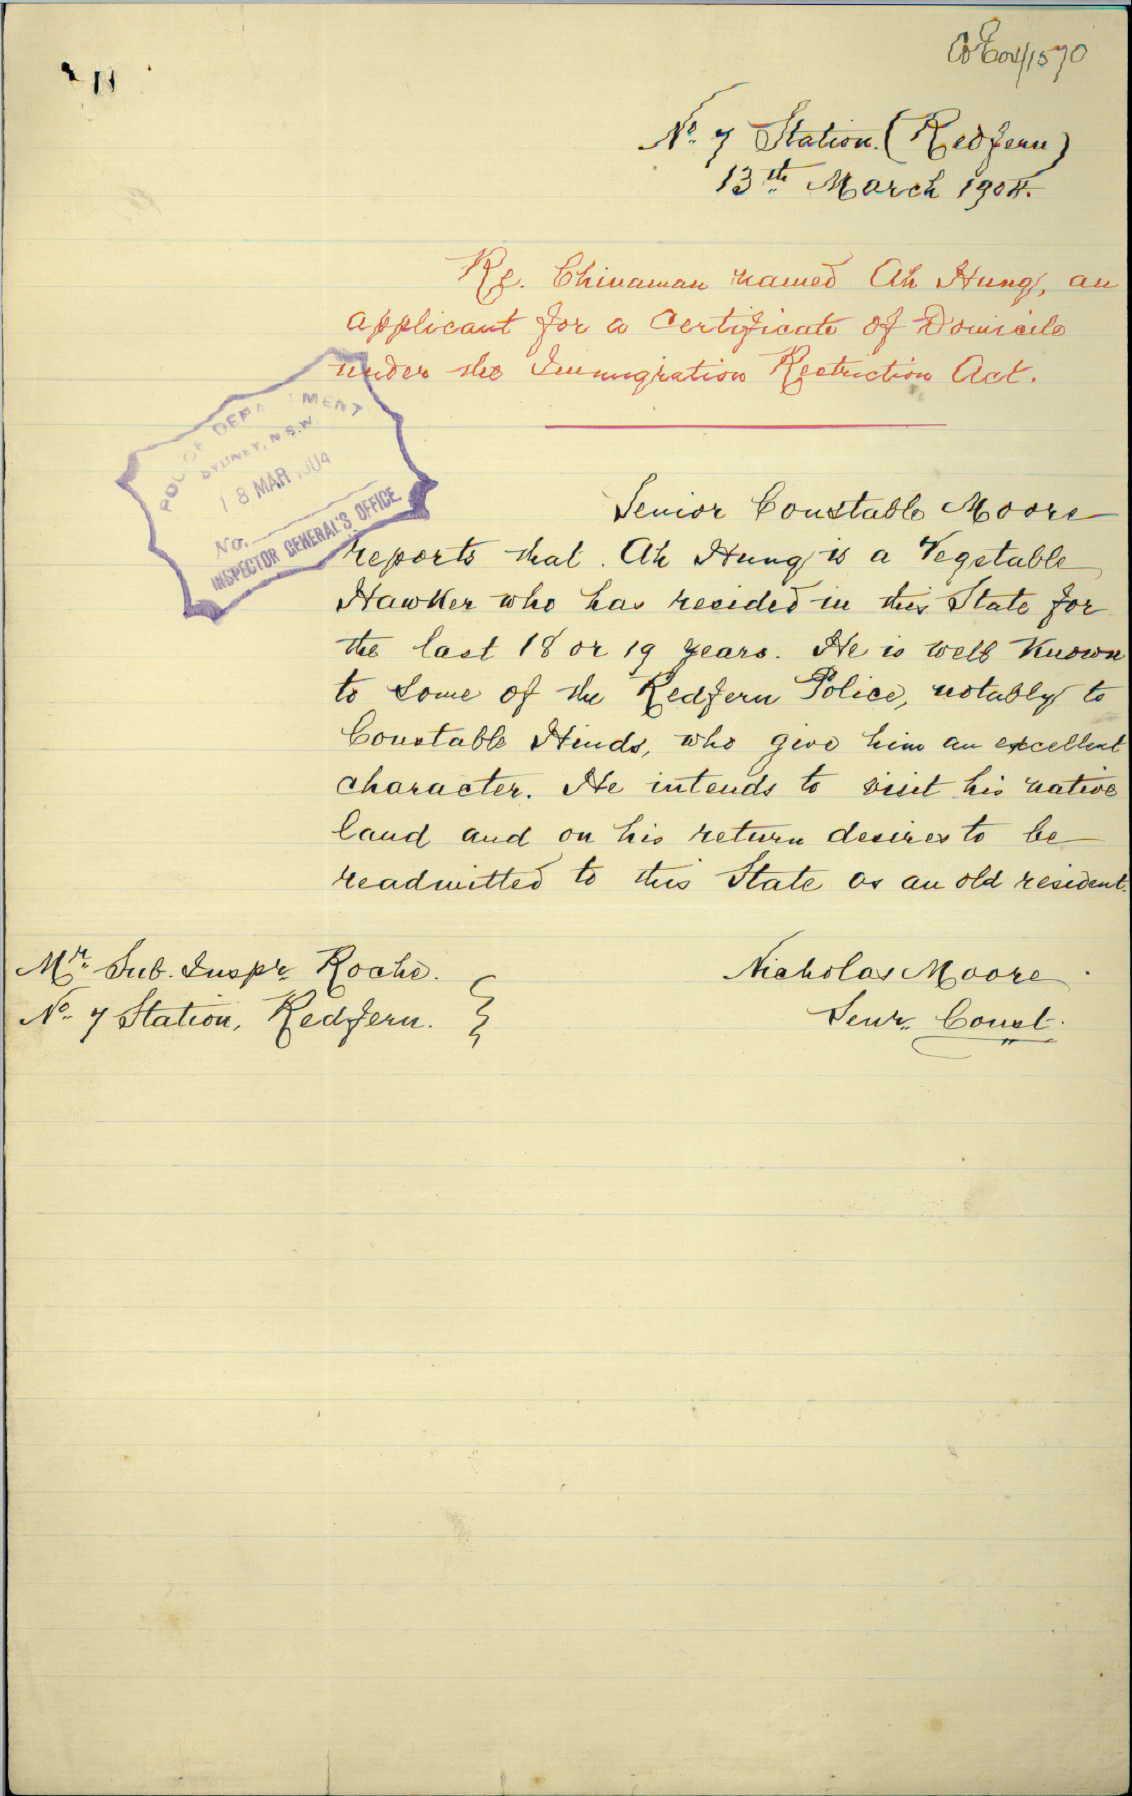 No. 7 Station. (Redfern)
13th March 1904.
Re. Chinaman named Ah Hung, an
applicant for a Certificate of Domicile
under the Immigration Restriction Act.
POLICE DEPARTMENT
SYDNEY, N.S.W.
18 MAR 1904
No.
INSPECTOR GENERAL'S OFFICE.
Senior Constable Moore
reports that Ah Hung is a Vegetable
Hawker who has resided in this State for
the last 18 or 19 years. He is well Known
to some of the Redfern Police, notably to
Constable Hinds, who give him an excellent
character. He intends to visit his native
land and on his return desires to be
readmitted to this State as an old resident.
Mr. Sub. Inspr Roche.
No. 7 Station, Redfern.
Nicholas Moore
Senr. Const.